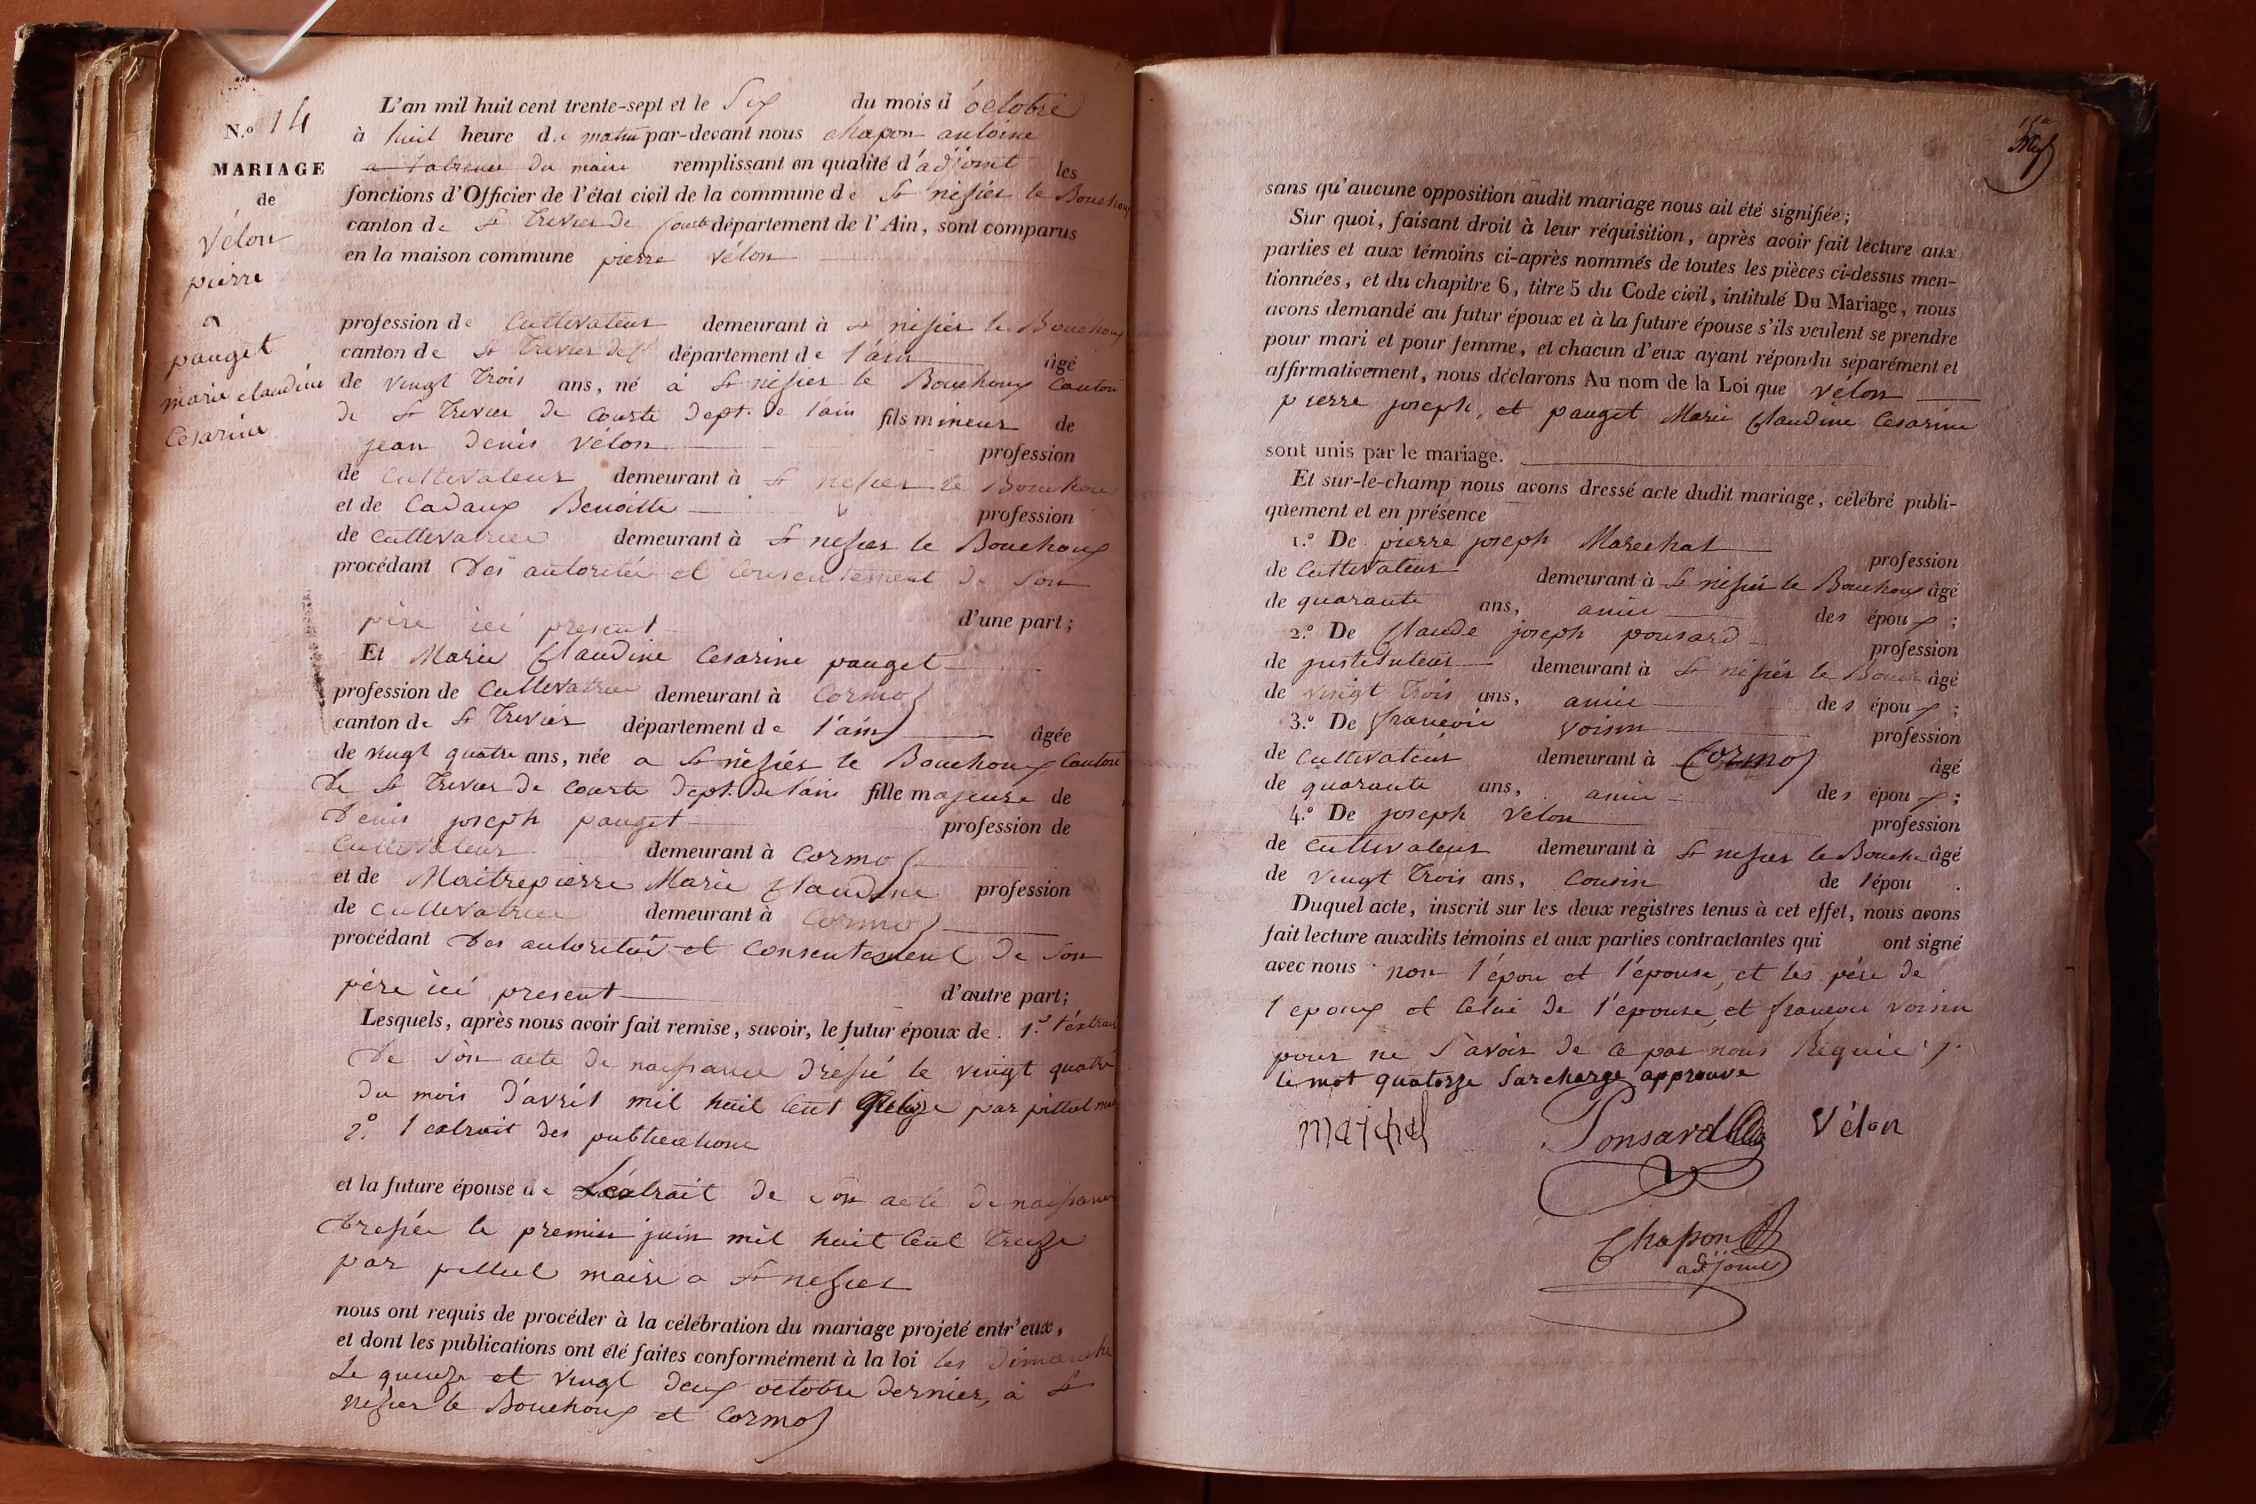 N.º 14
MARIAGE
de
Vélon
pierre
a
pauget
marie claudine
Césarine
L'an mil huit cent trente-sept et le Six du mois d'octobre
à huit heure de matin par-devant nous chapon antoine
a l'absence du maire remplissant en qualité d'adjoint les
fonctions d'Officier de l'état civil de la commune de St nisier le Bouchoux
canton de St Trivier de Courte département de l'Ain, sont comparus
en la maison commune pierre Vélon
profession de Cultivateur demeurant à St nisier le Bouchoux
canton de St Trivier de Cte département de l'ain âgé
de vingt Trois ans, né à St nisier le Bouchoux canton
de St Trivier de Courte dept. de l'ain fils mineur de
jean denis Vélon profession
de Cultivateur demeurant à St nisier le Bouchoux
et de Cadaux Benoitte profession
de cultivatrice demeurant à St nisier le Bouchoux
procédant des autorités et consentement de Son
père ici present d'une part ;
Et Marie Claudine Cesarine pauget
profession de Cultivatrice demeurant à Cormoz
canton de St Trivier département de l'ain âgée
de vingt quatre ans, née a St nisier le Bouchoux Canton
de St Trivier de Courte dept. de l'ain fille majeure de
Denis joseph pauget profession de
Cultivateur demeurant à Cormoz
et de Maitrepierre Marie Claudine profession
de Cultivatrice demeurant à Cormoz
procédant des autorités et consentement de Son
père ici present d'autre part;
Lesquels, après nous avoir fait remise, savoir, le futur époux de 1.º l'extrait
De Son acte de naissance dréssé le vingt quatre
du mois d'avril mil huit cent quatorze par pittiol
2.º l'extrait des publications
et la future épouse de L'éxtrait de Son acte de naissance
dressée le premier juin mil huit cent treize
par pittiol maire a St nisier
nous ont requis de procéder à la célébration du mariage projeté entr'eux,
et dont les publications ont été faites conformément à la loi les dimanche
Le quinze et vingt deux octobre dernier, à St
nisier le Bouchoux et Cormoz
sans qu'aucune opposition audit mariage nous ait été signifiée ;
Sur quoi, faisant droit à leur réquisition, après avoir fait lecture aux
parties et aux témoins ci-après nommés de toutes les pièces ci-dessus men-
tionnées, et du chapitre 6, titre 5 du Code civil, intitulé Du Mariage, nous
avons demandé au futur époux et à la future épouse s'ils veulent se prendre
pour mari et pour femme, et chacun d'eux ayant répondu séparément et
affirmativement, nous déclarons Au nom de la Loi que Vélon
pierre joseph, et pauget Marie Claudine Cesarine
sont unis par le mariage.
Et sur-le-champ nous avons dressé acte dudit mariage, célébré publi-
quement et en présence
1.º De pierre joseph Marechal profession
de Cultivateur demeurant à St nisier le Bouchoux âgé
de quarante ans, amie des époux ;
2.º De Claude joseph ponsard profession
de justituteur demeurant à St nisier le Bouch âgé
de vingt Trois ans, amie des époux ;
3.º De francois Voisin profession
de Cultivateur demeurant à Cormoz âgé
de quarante ans, amie des époux ;
4.º De joseph Vélon profession
de Cultivateur demeurant à St nisier le Bouch âgé
de vingt Trois ans, cousin de l'épou .
Duquel acte, inscrit sur les deux registres tenus à cet effet, nous avons
fait lecture auxdits témoins et aux parties contractantes qui ont signé
avec nous non l'épou et l'épouse, et les pére de
l'epoux et celui de l'epouse, et francois voisin
pour ne Savoir de ce par nous Requis /.
Le mot quatorze Surcharge approuvé
Ponsard Vélon
Chapon
adjoint